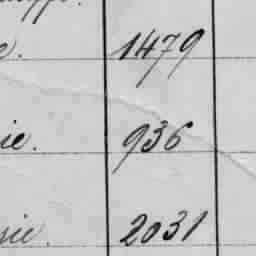 e. 1479
ie. 936
sie. 2031